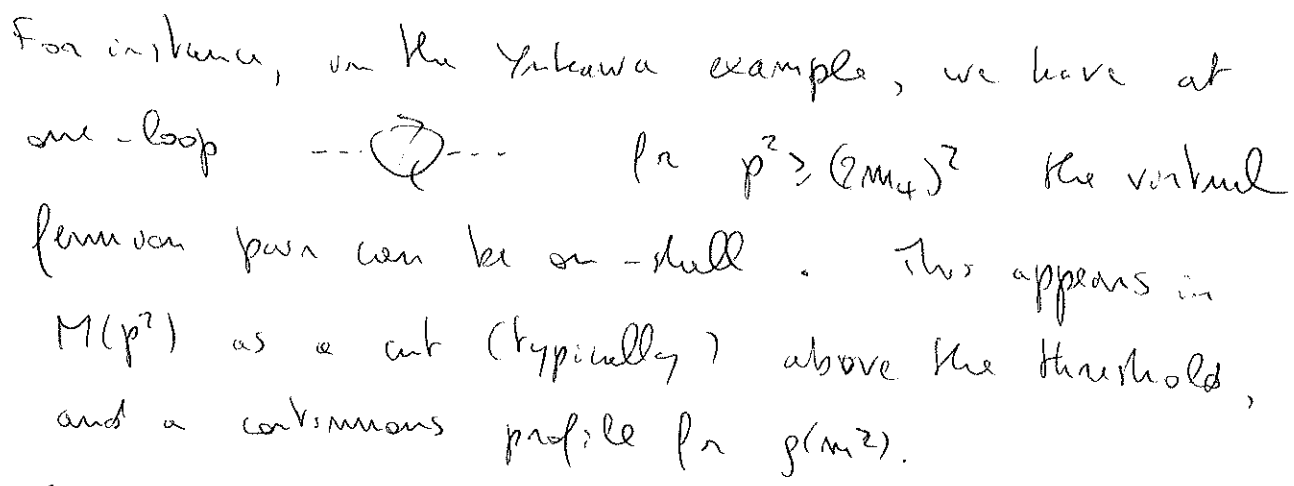 For instance, in the Yukawa example, we have at
one-loop for p² ≥ (2m_ψ)² the virtual
fermion pair can be on-shell. This appears in
M(p²) as a cut (typically) above the threshold,
and a continuous profile for ρ(m²).